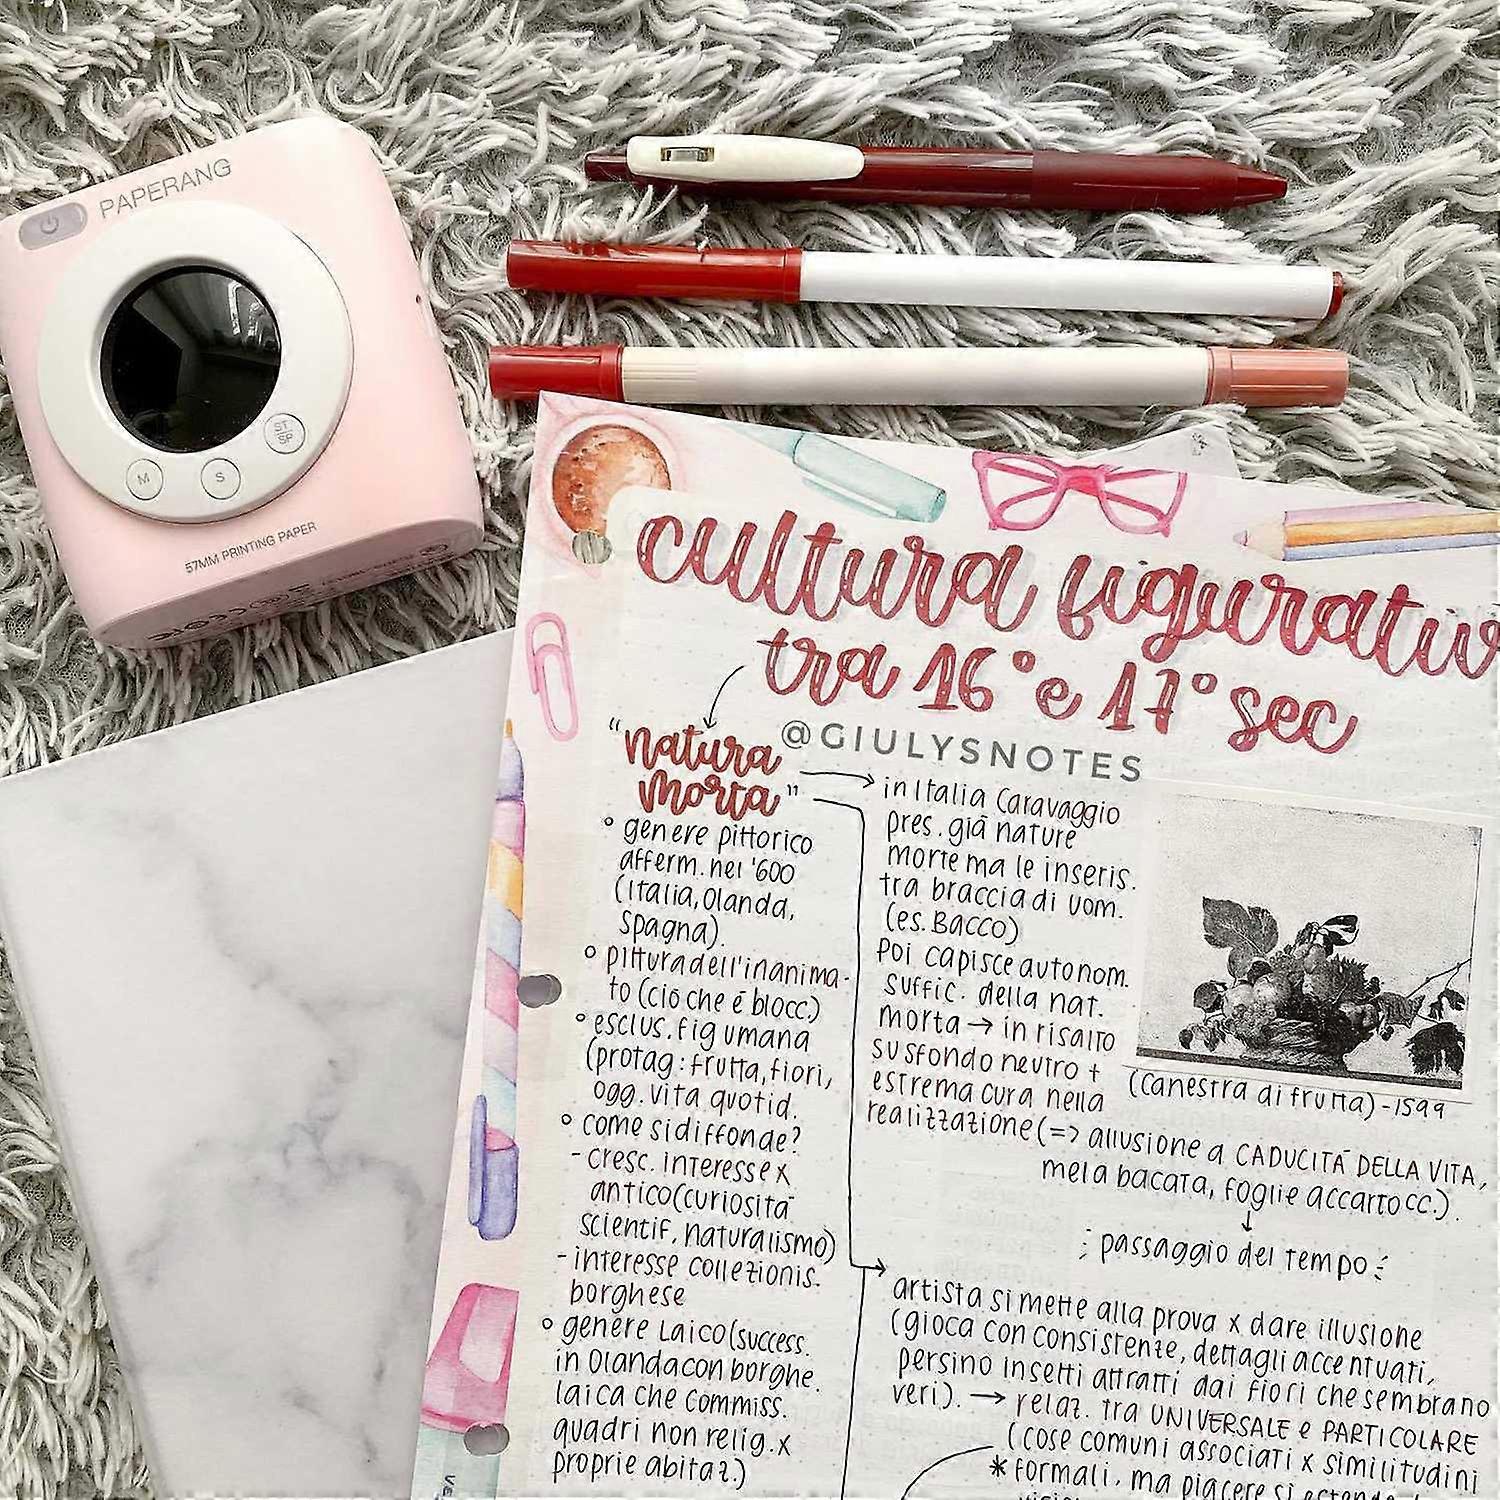 PAPERANG
ST
SP
M
S
57MM PRINTING PAPER
cultura figurativ
tra 16° e 17° sec
@GIULYSNOTES
"natura
morta"
° genere pittorico
afferm. nel '600
(Italia, Olanda,
Spagna).
° pittura dell'inanima-
to (ciò che è blocc.)
° esclus. fig umana
(protag: frutta, fiori,
ogg. vita quotid.
° come si diffonde?
- cresc. interesse x
antico (curiosità
scientif, naturalismo)
- interesse collezionis.
borghese
° genere Laico (success.
in Olanda con borghe.
laica che commiss.
quadri non relig. x
proprie abitaz.)
in Italia Caravaggio
pres. già nature
morte ma le inseris.
tra braccia di uom.
(es. Bacco)
Poi capisce autonom.
suffic. della nat.
morta → in risalto
su sfondo neutro +
estrema cura nella
realizzazione (=> allusione a CADUCITÀ DELLA VITA,
mela bacata, foglie accartocc.).
↓
passaggio del tempo
(Canestra di frutta) - 1599
artista si mette alla prova x dare illusione
(gioca con consistenze, dettagli accentuati,
persino insetti attratti dai fiori che sembrano
veri). → relaz. tra UNIVERSALE e PARTICOLARE
(cose comuni associati x similitudini
* formali, ma piacere si